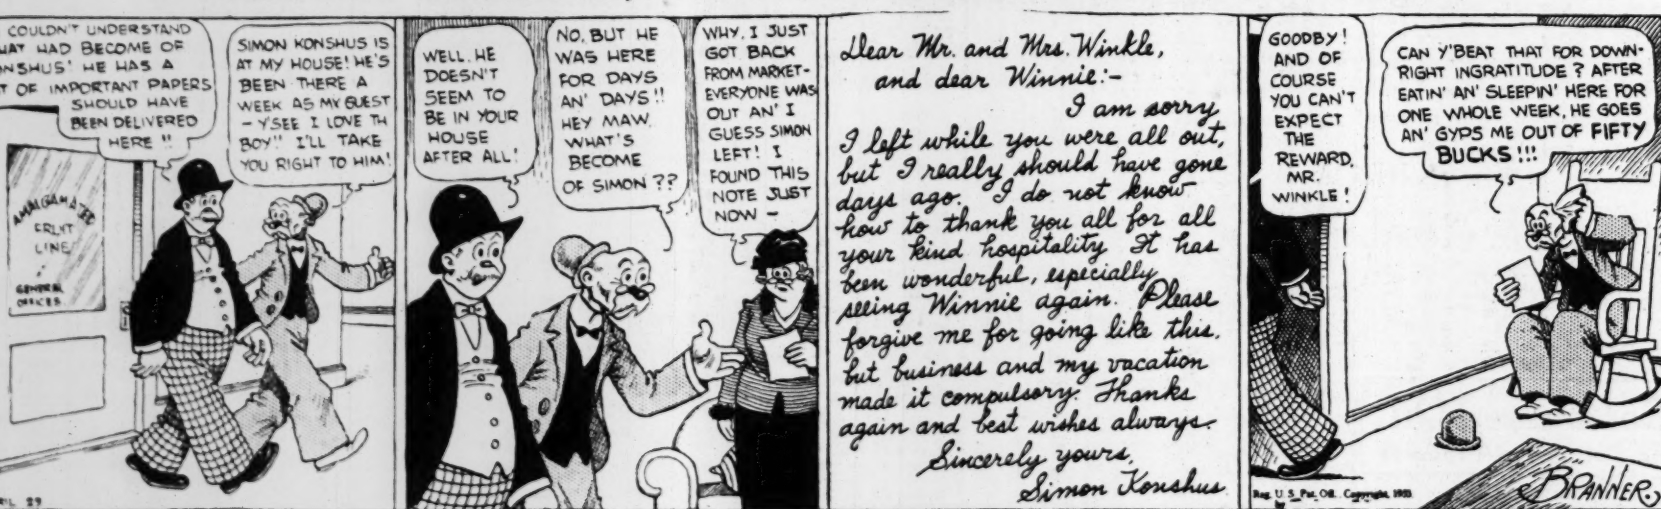 COULDN'T UNDERSTAND
HAD BECOME OF
HE HAS A
OF IMPORTANT PAPERS
SHOULD HAVE
BEEN DELIVERED
HERE !!
SIMON KONSHUS IS
AT MY HOUSE! HE'S
BEEN THERE A
WEEK AS MY GUEST
- Y'SEE I LOVE TH
BOY!! I'LL TAKE
YOU RIGHT TO HIM!
LINE
GENERAL
OFFICES
29
WELL. HE
DOESN'T
SEEM TO
BE IN YOUR
HOUSE
AFTER ALL!
NO, BUT HE
WAS HERE
FOR DAYS
AN' DAYS!!
HEY MAW.
WHAT'S
BECOME
OF SIMON ??
WHY, I JUST
GOT BACK
FROM MARKET-
EVERYONE WAS
OUT AN' I
GUESS SIMON
LEFT! I
FOUND THIS
NOTE JUST
NOW -
Dear Mr. and Mrs. Winkle,
and dear Winnie:-
I am sorry
I left while you were all out,
but I really should have gone
days ago. I do not know
how to thank you all for all
your kind hospitality It has
been wonderful, especially
seeing Winnie again. Please
forgive me for going like this,
but business and my vacation
made it compulsory. Thanks
again and best wishes always.
Sincerely yours,
Simon Konshus
GOODBY!
AND OF
COURSE
YOU CAN'T
EXPECT
THE
REWARD,
MR.
WINKLE!
CAN Y'BEAT THAT FOR DOWN-
RIGHT INGRATITUDE? AFTER
EATIN' AN' SLEEPIN' HERE FOR
ONE WHOLE WEEK, HE GOES
AN' GYPS ME OUT OF FIFTY
BUCKS!!!
Reg. U. S. Pat. Off. Copyright, 1933
BRANNER